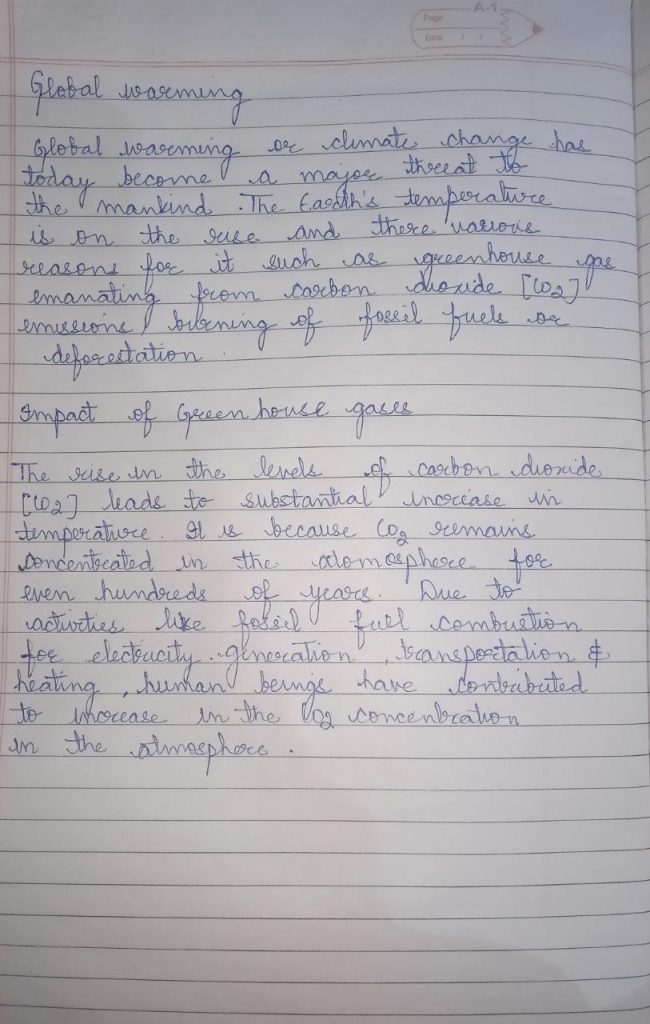 A-1
Page
Date / /
Global warming
Global warming or climate change has
today become a major threat to
the mankind. The Earth's temperature
is on the rise and there various
reasons for it such as greenhouse gas
emanating from carbon dioxide [CO2]
emissions burning of fossil fuels or
deforestation.
Impact of Green house gases
The rise in the levels of carbon dioxide
[CO2] leads to substantial increase in
temperature. It is because CO2 remains
concentrated in the atomosphere for
even hundreds of years. Due to
activities like fossil fuel combustion
for electricity generation, transportation &
heating, human beings have contributed
to increase in the CO2 concentration
in the atmosphere.